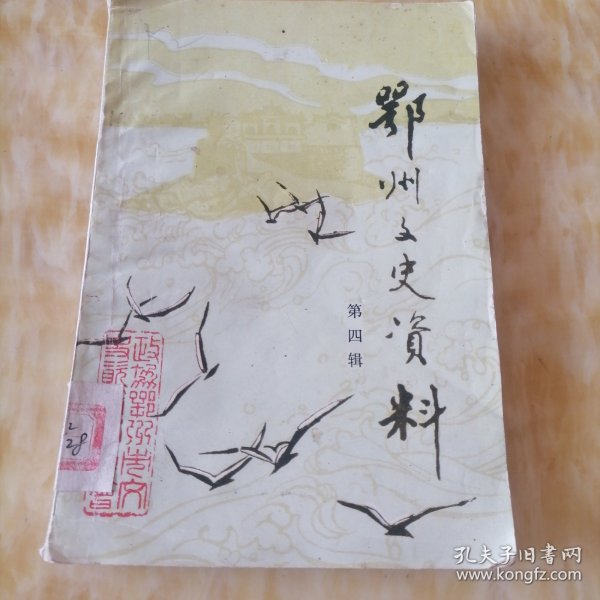 鄂州文史资料
第四辑
政协鄂州市文
28
孔夫子旧书网
www.kongfz.com